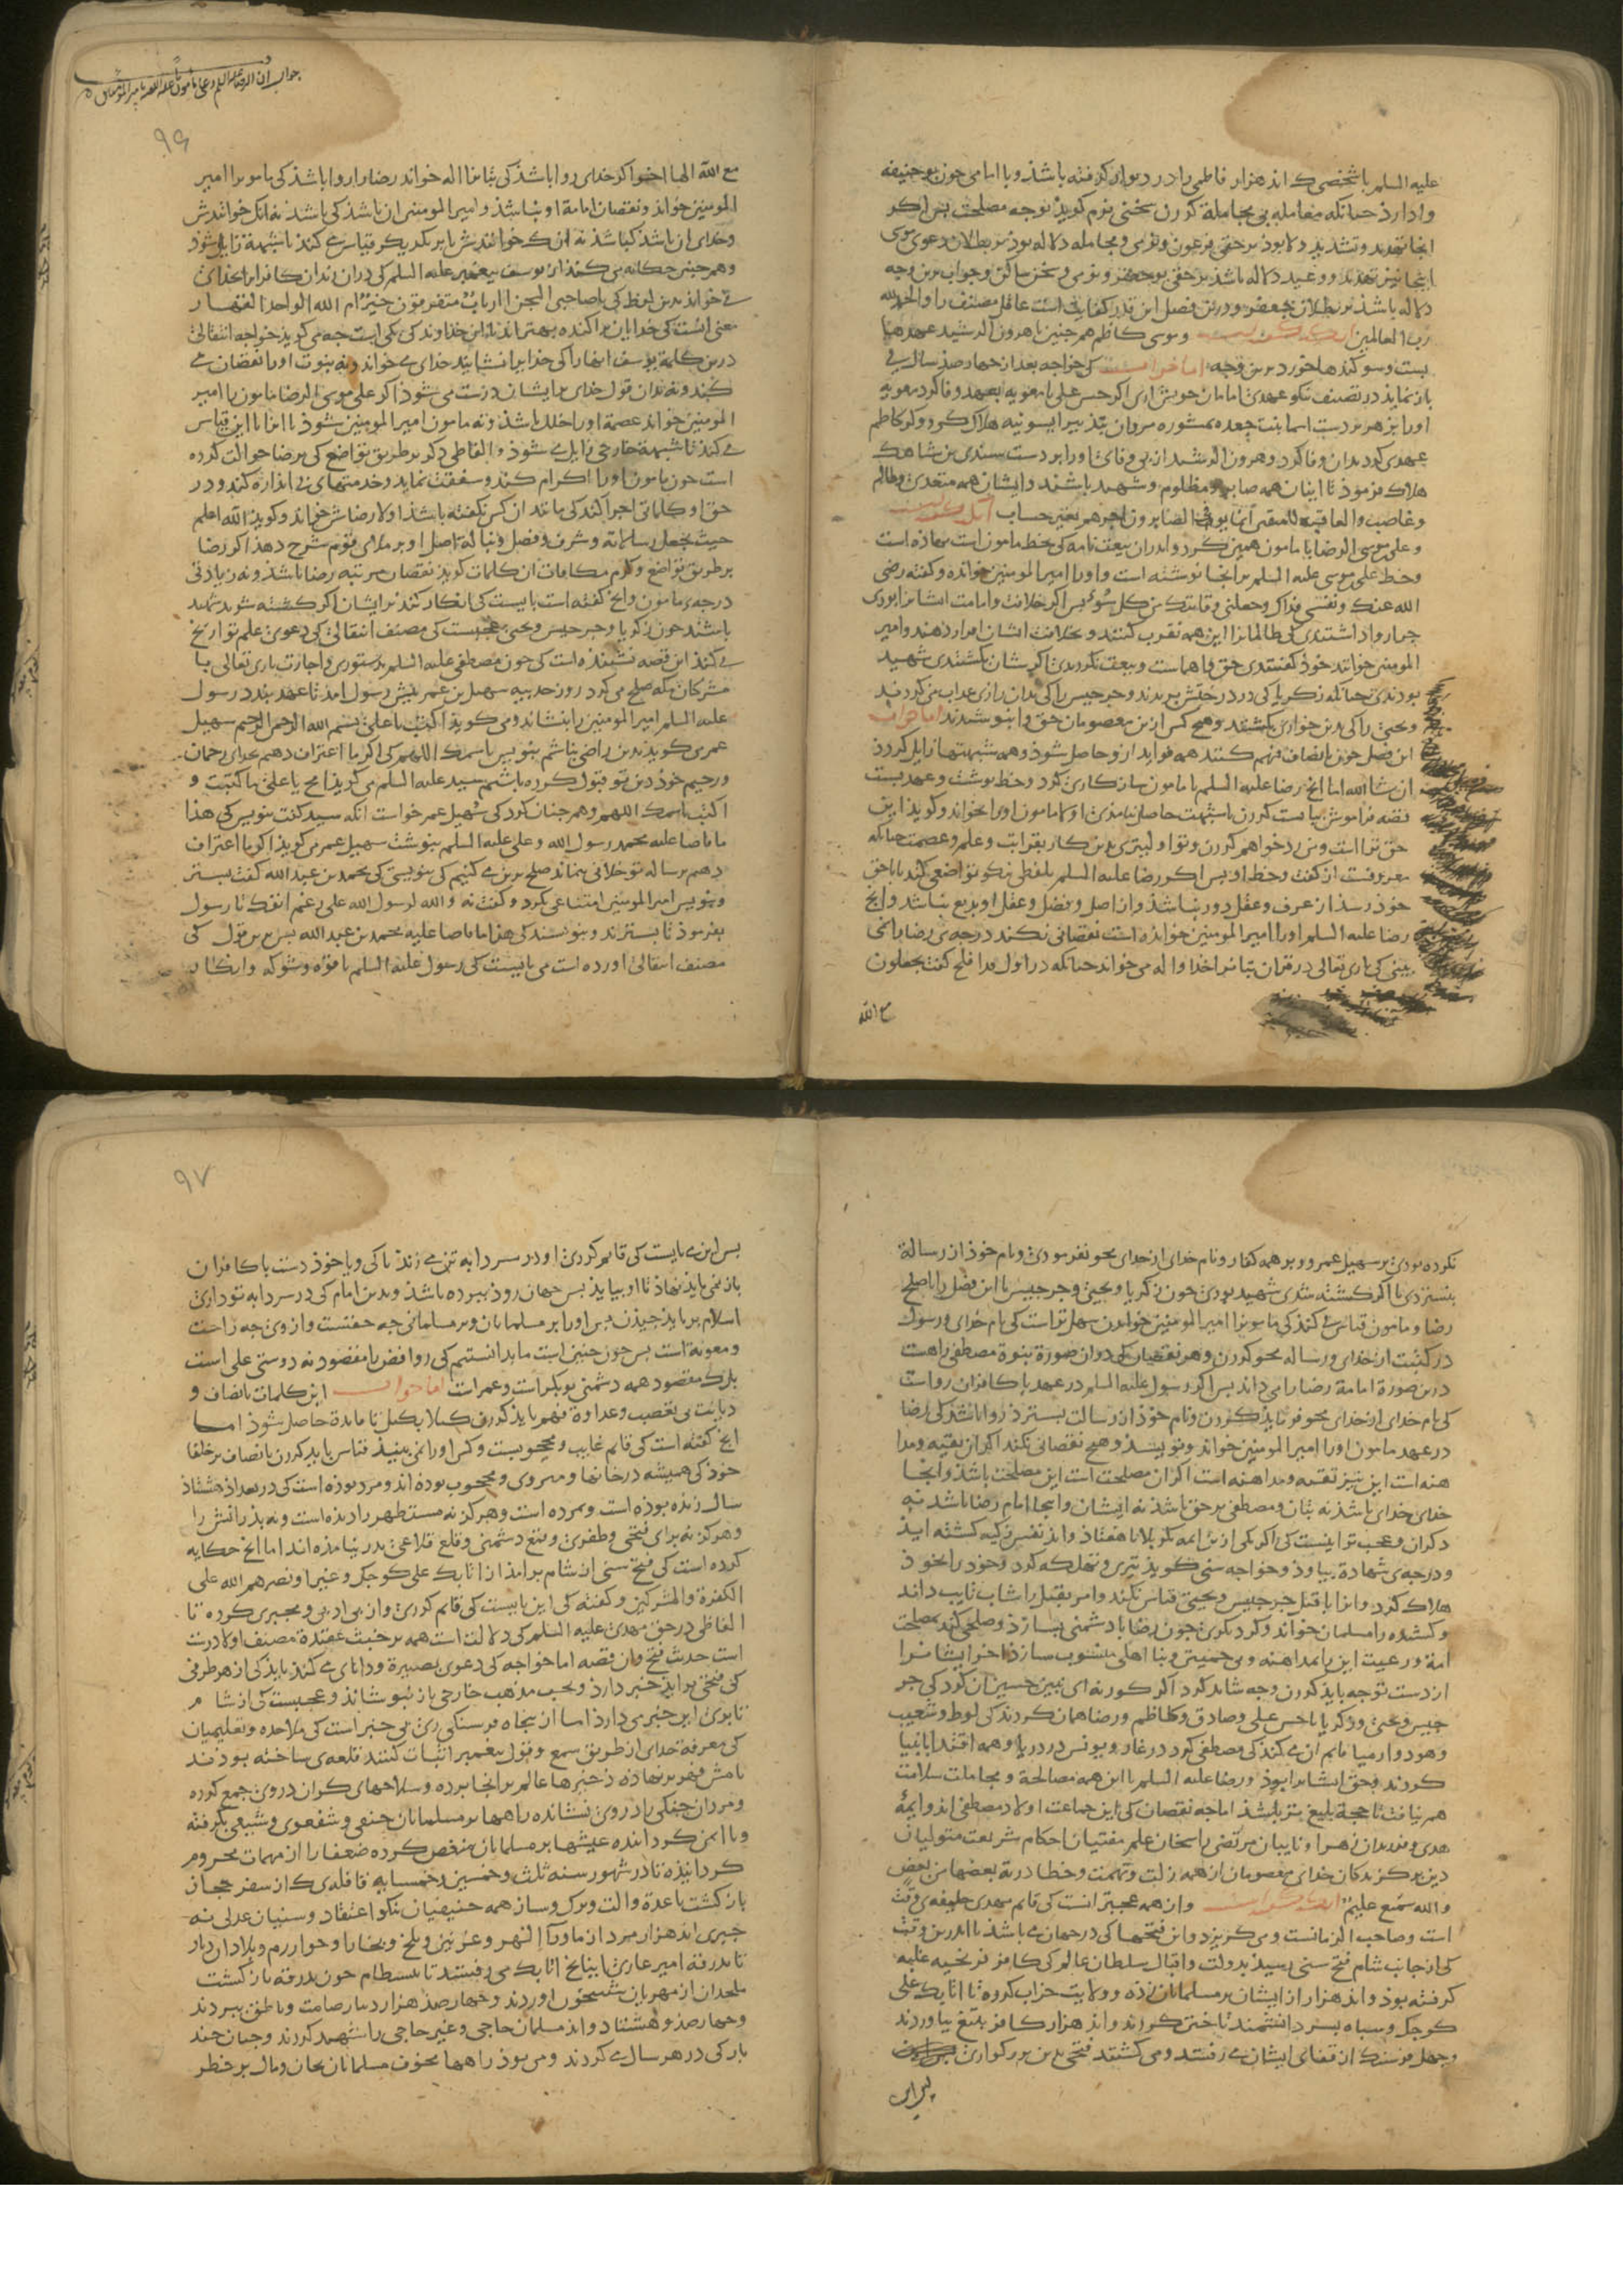 علیه السلم با شخصی که اند هزار فاطمی را در دیوار گرفته باشذ و با امامی چون بوحنیفه
وا دارذ چنانکه معامله بی مجاملة کردن سخنی نرم گویذ بوجه مصلحت بس اگر
انجا تهدید و تشدید دلا بوذ بر حقی فرعون و نرمی و مجامله دلاله بوذ بر بطلان دعوی موسی
اینجا نیز تهدید و وعید دلاله باشذ بر حقی بوجعفر و نرمی و سخن ساکن و جواب برین وجه
دلاله باشذ بر بطلان جعفر و درین فصل این قدر کفایت است عاقل مصنف را والحمدلله
رب العالمین انکه گفته است و موسی کاظم هم چنین با هرون الرشید عهدها
ببست و سوگندها خورد برین وجه اما جواب انست کی خواجه بعد از چهار صذ سال می
باز نماید در تصنیف نکو عهدی امامان خویش اری اگر حسن علی با معویه بعهد وفا کرد معویه
او را بزهر بر دست اسما بنت جعده بمشوره مروان بتدبیر ایسونیه هلاک کرد و گر کاظم
عهدی کرد بدان وفا کرد و هرون الرشید از بی وفائی او را بر دست سندی بن شاهک
هلاک فرموذ تا اینان همه صابر و مظلوم و شهید باشند و ایشان همه متعدی و ظالم
و غاصب والعاقبة للمتقین انما یوفی الصابرون اجرهم بغیر حساب انکه گفته است
و علی موسی الرضا با مامون همین کرد و اندران بیعت نامه کی بخط مامون است نهاذه است
و خط علی موسی علیه السلم بر انجا نوشته است و او را امیر المومنین خوانده و گفته رضی
الله عنک و نفسی فداک و جعلنی وقایتک من کل سوء بس اگر خلافت و امامت ایشانرا بوذی
چرا روا داشتندی کی ظالمانرا این همه تقرب کنند و بخلافت ایشان اقرار دهند و امیر
المومنین خوانند خوذ گفتندی حق ما هماست و بیعت نکردندی اگر شان بکشتندی شهید
بوذندی چنانکه زکریا کی در درختش ببریدند و جرجیس را کی بدان زاری عذاب می کردند
و یحیی را کی بدین خواری بکشتند و هیچ کس از این معصومان حق وا نبوشیدند اما جواب
این فصل چون بانصاف فهم کنند همه فواید ازو حاصل شوذ و همه شبهتها زایل گردذ
ان شا الله اما انچه رضا علیه السلم با مامون سازگاری کرد و خط نوشت و عهد بست
قصه فراموش نبایست کردن تا شبهت حاصل نیامدی اولا مامون او را بخواند و گویذ این
حق شما است و من رد خواهم کردن و تو اولیتری بدین کار بقرابت و علم و عصمت چنانکه
معروفست از گفت و خط او بس اگر رضا علیه السلم بلفظی نکو تواضعی کند تا با حق
خوذ رسذ از عرف و عقل دور نباشذ و از اصل و فضل و عقل او بدیع نباشد و انچ
رضا علیه السلم او را امیر المومنین خوانده است نقصانی نکند درجه ی رضا را نمی
بینی کی باری تعالی در قران بتانرا خدا و اله می خواند چنانکه در اول قد افلح گفت یجعلون
مع الله
جواب ان الرضا علیه السلم دعی مامونا علیه اللعنه بامیر المومنین
۹۶
مع الله الها اخر اگر خدای روا باشذ کی بتانرا اله خواند رضا را روا باشذ کی مامونرا امیر
المومنین خواند و نقصان امامة او نباشذ و امیر المومنین ان باشذ کی باشذ نه انک خوانندش
و خدای ان باشذ کباشذ نه ان که خوانندش تا برین یکدیگر قیاس می کنذ تا شبهة زایل شوذ
و هم چنین حکایه می کنذ از یوسف پیغمبر علیه السلم کی در ان زندان کافرانرا بخدای
می خواند بدین لفظ کی یا صاحبی السجن اارباب متفرقون خیر ام الله الواحد القهار
معنی انست کی خدایان پراکنده بهتراند یا این خداوند کی یکی است چه می گوید خواجه انتقالی
درین کلمة یوسف انهارا کی خدایرا نشایند خدای می خواند و نه نبوت او را نقصان می
کند و نه بدان قول خدای بر ایشان درست می شوذ اگر علی موسی الرضا مامون را امیر
المومنین خواند عصمة او را خلل باشذ و نه مامون امیر المومنین شوذ تا انرا با این قیاس
می کند تا شبهة خارجی زایل می شوذ و الفاظی دگر بر طریق تواضع کی برضا حوالت کرده
است چون مامون او را اکرام کند و شفقت نماید و خدمتهای بی اندازه کند و در
حق او کلماتی اجرا کند کی مانند ان کس نگفته باشذ اولا رضاش خواند و گوید الله اعلم
حیث یجعل رسالته و شرف و فضل و نبالة اصل او بر ملای قوم شرح دهذ اگر رضا
بر طریق تواضع و کرم مکافات ان کلمات گوید نقصان مرتبه رضا باشذ و نه زیادتی
درجه ی مامون و انچ گفته است بایست کی انکار کنند بر ایشان اگر کشته شوند شهید
باشند چون زکریا و جرجیس و یحیی عجبست کی مصنف انتقالی کی دعوی علم تواریخ
می کنذ این قصه نشنیده است کی چون مصطفی علیه السلم بدستوری و اجازت باری تعالی با
مشرکان مکه صلح می کرد روز حدیبیه سهیل بن عمر پیش رسول امذ تا عهد بندد رسول
علیه السلم امیر المومنین را بنشاند و می گویذ اکتب یا علی بسم الله الرحمن الرحیم سهیل
عمر می گوید بدین راضی نباشم بنویس باسمک اللهم کی اگر ما اعتراف دهیم بخدای رحمان
و رحیم خوذ دین تو قبول کرده باشیم سید علیه السلم می گویذ امح یا علی ما کتبت و
اکتب باسمک اللهم و هم چنان کرد کی سهیل عمر خواست انگه سید گفت بنویس کی هذا
ما قاضا علیه محمد رسول الله و علی علیه السلم بنوشت سهیل عمر می گویذ اگر ما اعتراف
دهیم برساله تو خلافی نماند صلح برین می کنیم کی بنویسی کی محمد بن عبد الله گفت بستر
و بنویس امیر المومنین امتناعی بکرد و گفت نه والله لرسول الله علی رغم انفک تا رسول
بفرموذ تا بستردند و بنوشتند کی هذا ما قاضا علیه محمد بن عبد الله بس برین قول کی
مصنف انتقالی اورده است می بایست کی رسول علیه السلم با قوه و شوکه و انکار
نکرده بودی بر سهیل عمرو و بر همه کفار و نام خدای از خدای محو نفرمودی و نام خوذ از رسالة
بنستردی تا اگر کشته شدی شهید بودی چون زکریا و یحیی و جرجیس تا این فضل را با صلح
رضا و مامون قیاس می کند کی مامونرا امیر المومنین خواندن سهل تر است کی نام خدای و رسول
در کتبت از خدای و رساله محو کردن و هر نقصان کی در ان صورة بنبوة مصطفی راهست
درین صورة امامة رضا را می داند بس اگر رسول علیه السلم در عهد با کافران رواست
کی نام خدای از خدای محو فرماید کردن و نام خوذ از رسالت بسترذ روا باشذ کی رضا
در عهد مامون او را امیر المومنین خواند و نویسد و هیچ نقصانی نکند اگر ان تقیه و مدا
هنه است این نیز تقیه و مداهنه است اگر ان مصلحت است این مصلحت باشذ و انجا
خدای خدای باشذ نه بتان و مصطفی بر حق باشذ نه ایشان و اینجا امام رضا باشد نه
دگران و عجب تر اینست کی اگر یکی ازین ایمه بکربلا با هفتاذ و اند نفس زکیه کشته ایذ
و درجه ی شهادة بیاوذ و خواجه سنی گویذ تیزی و تهلکه کرد و خود را بخوذ
هلاک کرد و انرا با قتل جرجیس و یحیی قیاس نکند و امر بقتل را شاب تایب داند
و کشنده را مسلمان خواند و گر دیگری چون رضا با دشمنی بسازذ و صلحی کند بمصلحت
امة و رعیت این را بمداهنه و بی حمیتی و نااهلی منسوب سازذ اخر ایشانرا
از دست تو چه باید کردن و چه شاید کرد اگر کور نه ای ببین حسین ان کرد کی جر
جیس و یحیی و زکریا با حسن علی و صادق و کاظم و رضا همان کردند کی لوط و شعیب
و هود و ارمیا قایم ان می کند کی مصطفی کرد در غار و یونس در دریا و همه اقتدا بانبیا
کردند و حق ایشانرا بوذ و رضا علیه السلم با این همه مصالحة و مجاملت سلامت
هم نیافت تا حجة بلیغ تر باشذ اما چه نقصان کی این جماعت اولاد مصطفی اند و ایمهٔ
هدی و فرزندان زهرا و نایبان مرتضی راسخان علم مفتیان احکام شریعت متولیان
دین برگزیدگان خدای معصومان از همه زلت و تهمت و خطا ذریة بعضها من بعض
والله سمیع علیم انکه گفته است و ان همه عجبتر انست کی قایم مهدی خلیفه ی وقت
است و صاحب الزمانست و می گریزد و این فتحها کی در جهان می باشذ تا اندرین وقت
کی از جانب شام فتح سنی رسیذ بدولت و اقبال سلطان عالم کی کافر فرنجیه غلبه
گرفته بوذ و اند هزار از ایشان بر مسلمانان زده و ولایت خراب کرده تا اتابک علی
کوجک و سباه بسر دانشمند تاختن کردند و اند هزار کافر بتیغ بیاوردند
و چهل فرسنگ از قفای ایشان می رفتند و می کشتند فتحی بدین بزرگواری
بس این
۹۷
بس این می بایست کی قایم کردی او در سردابه تن می زند تا کی و یا خوذ دست با کافران
باز نمی یاید نهاذ تا او بیایذ بس جهان روذ ببرده باشذ و بدین امام کی در سردابه تو داری
اسلام بر بایذ چیذن بس او را بر مسلمانان و بر مسلمانی چه حقست و ازوی چه راحت
و معونة است بس چون چنین است ما بدانستیم کی روافض را مقصود نه دوستی علی است
بلک مقصود همه دشمنی بوبکر است و عمر است اما جواب این کلمات بانصاف و
دیانت بی تعصب و عداوة فهم باید کردن کیلا بکیل تا فایدة حاصل شوذ اما
انچ گفته است کی قایم غایب و محجوبست و کس او را نمی بینذ قیاس باید کردن بانصاف بر خلفا
خوذ کی همیشه در خانها و مهروی و محجوب بوده اند و مرد بوده است کی در بغداد هشتاذ
سال زنده بوذه است و بمرده است و هرگز نه مستظهر را دیده است و نه پدرانش را
و هرگز نه برای فتحی و ظفری و منع دشمنی و قلع قلاعی بدر نیامذه اند اما انچ حکایه
کرده است کی فتح سنی از شام برامذ از اتابک علی کوجک و غیر او نصرهم الله علی
الکفرة والمشرکین و گفته کی این بایست کی قایم کردی و ان بی ادبی و مجبری کرده تا
الفاظی در حق مهدی علیه السلم کی دلالت است همه بر خبث عقیدة مصنف اولا درست
است حدیث فتح و ان قصه اما خواجه کی دعوی بصیرة و دانای می کنذ باید کی از هر طرفی
کی فتحی براید خبر دارذ و بحب مذهب خارجی باز نبوشاند و عجبست کی از شام
تا بری این خبر می دارذ اما از پنجاه فرسنگی ری بی خبر است کی ملاحده و تعلیمیان
کی معرفة خدای از طریق سمع و قول پیغمبر اثبات کنند قلعه ی ساخته بودند
نامش مهرین نهاذه ذخیرها عالم بر انجا برده و سلاحهای گران دروی جمع کرده
و مردان جنگی را دروی نشانده راهها بر مسلمانان حنفی و شفعوی و شیعی بگرفته
و نا ایمن گردانیده عیشها بر مسلمانان منغص کرده ضعفا را از مهمات محروم
گردانیذه تا در شهور سنه ثلث و خمسین و خمسمایه قافله ی که از سفر حجاز
باز گشت با عدة و الت و برگ و ساز همه حنیفیان نکو اعتقاد و سنیان عدلی نه
جبری اند هزار مرد از ماورا النهر و غزنین و بلخ و بخارا و خوارزم و بلاد ان دیار
تا بدرقه امیر غازی اینانج اتابک می رفتند تا ببسطام چون بدرقه باز گشت
ملحدان از مهرین شبیخون اوردند و چهار صذ هزار دینار صامت و ناطق ببردند
و چهار صذ و هشتاد و اند مسلمان حاجی و غیر حاجی را شهید کردند و چنان چند
بار کی در هر سال می کردند و می بوذ راهها مخوف مسلمانان بجان و مال بر خطر